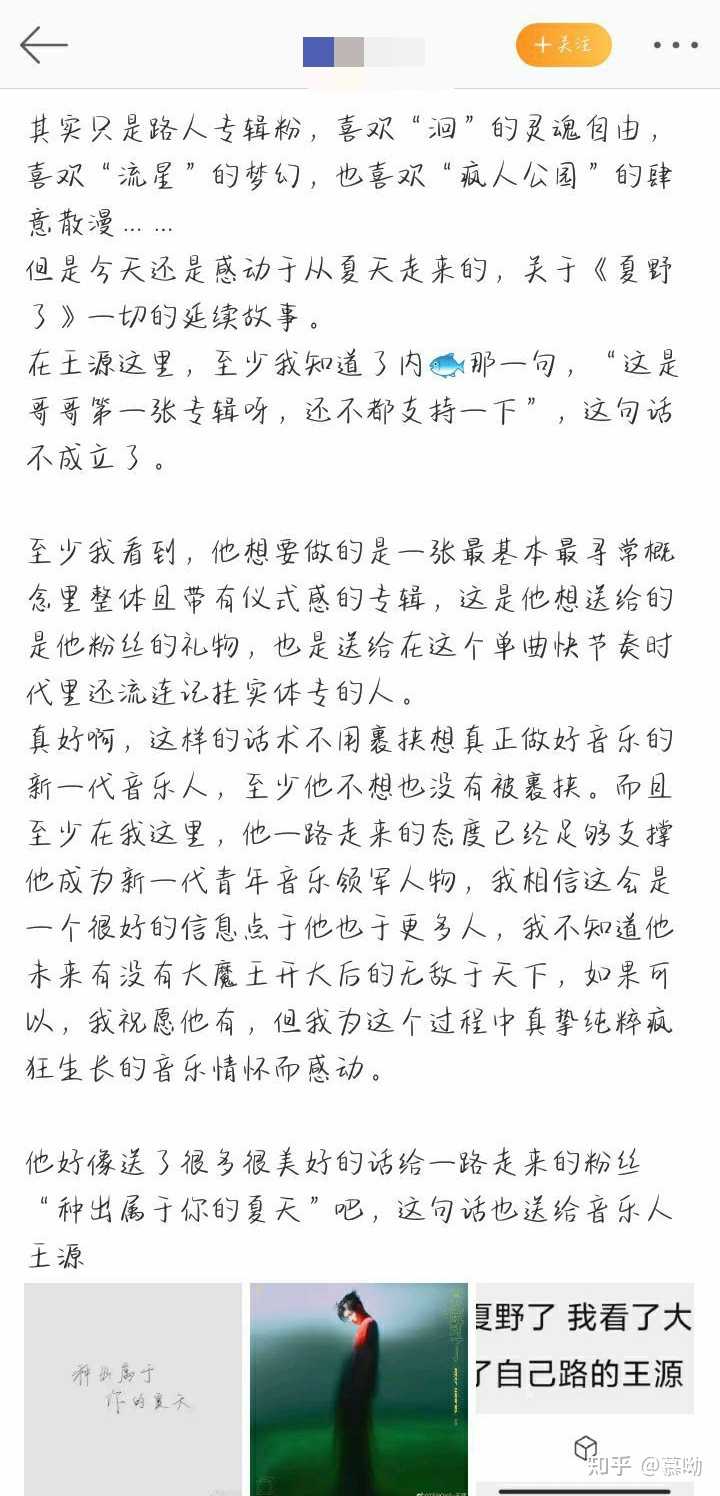 +关注
其实只是路人专辑粉，喜欢“洄”的灵魂自由，
喜欢“流星”的梦幻，也喜欢“疯人公园”的肆
意散漫……
但是今天还是感动于从夏天走来的，关于《夏野
了》一切的延续故事。
在王源这里，至少我知道了内🐟那一句，“这是
哥哥第一张专辑呀，还不都支持一下”，这句话
不成立了。
至少我看到，他想要做的是一张最基本最寻常概
念里整体且带有仪式感的专辑，这是他想送给的
是他粉丝的礼物，也是送给在这个单曲快节奏时
代里还流连记挂实体专的人。
真好啊，这样的话术不用裹挟想真正做好音乐的
新一代音乐人，至少他不想也没有被裹挟。而且
至少在我这里，他一路走来的态度已经足够支撑
他成为新一代青年音乐领军人物，我相信这会是
一个很好的信息点于他也于更多人，我不知道他
未来有没有大魔王开大后的无敌于天下，如果可
以，我祝愿他有，但我为这个过程中真挚纯粹疯
狂生长的音乐情怀而感动。
他好像送了很多很美好的话给一路走来的粉丝
“种出属于你的夏天”吧，这句话也送给音乐人
王源
种出属于
你的夏天
夏野了 我看了大
了自己路的王源
知乎 @慕呦